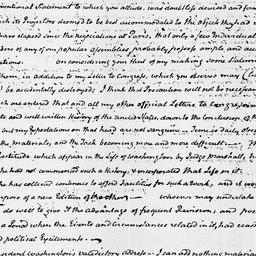 ventional Statement to which you allude, was doubtless devised and
which its Projectors deemed to be best accommodated to the objects they had
have elapsed since the negociations at Paris, that only a few Individuals
bers of any of our popular assemblies probably possess ample and
ations. on considering your hint of my making some
them, in addition to my Letter to Congress, which you observe may (
be accidentally destroyed; I think that Precaution will not be
ch are entered that and all my other official Letters to Congress
te and well written History of the United States, down to the Conclusion of the
but my Expectations on that head are not sanguine. Time is daily
the materials, and the Task becoming more and more difficult. The
Rectitude which appear in the Life of Washington by Judge Marshall,
he had not commenced such a History, & incorporated that Life in it.
he has collected contracts to afford Facilities for such a work, and it
appear of a new Edition of the other. whoever may undertake
do well to give it the advantage of frequent Revision, and
a Period when the Events and Circumstances related in it, had ceased
and political Excitements.
President Washington's valedictory address. I can add nothing material